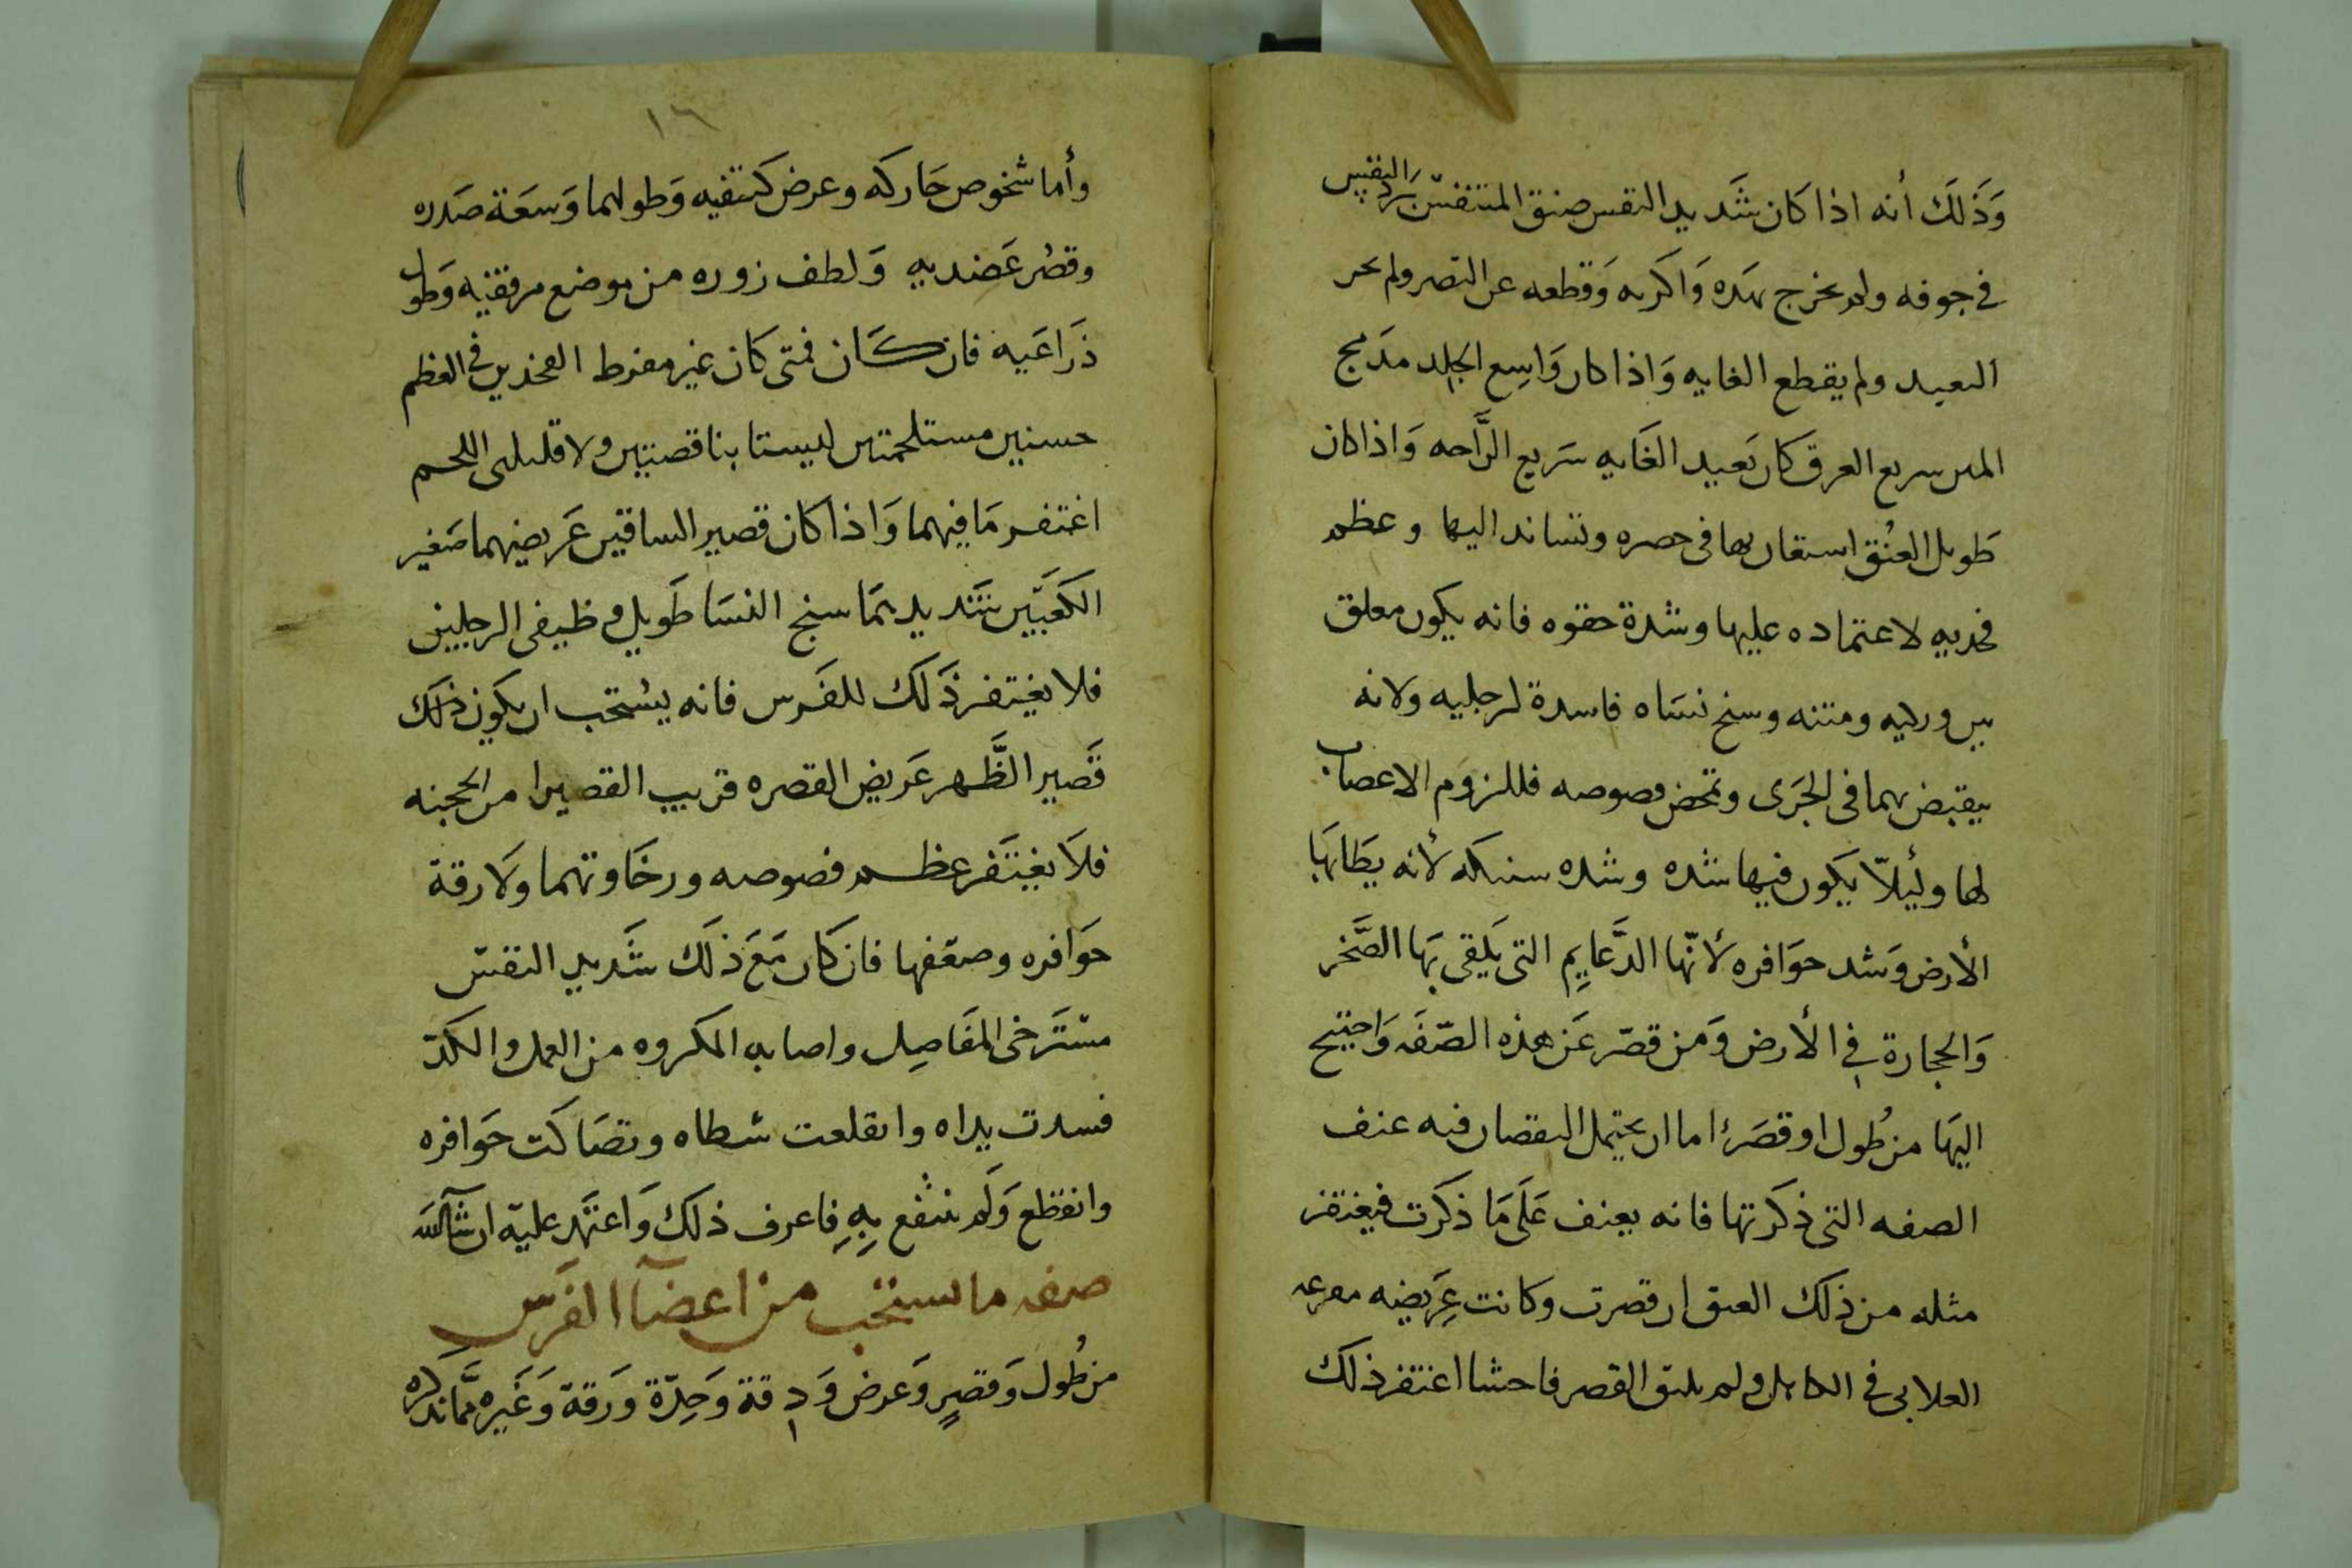 وَذَلَكَ أنه اذا كَان شَديد النفس ضيق المتنفس ترَدَّ النفس
فى جوفه ولم يخرج بهَده وَاكَربه وَقطعه عن النصر ولم
البعيد ولم يقطع الغايه وَاذا كان وَاسِع الجلد مدَمج
سريع العرق كان بَعيد الغَايه سَريع الرَّاحه وَاذا كان
طَويل العنُق استعان بها فى حصره وتساند اليها وعظم
فخديه لاعتماده عليها وشدة حقوه فانه يكون معلق
بين وركيه ومتنه وسنخ نسَاه فاسدة لرجليه ولانه
يقبض بهما فى الجرَى وتمحض فصوصه فللزوَم الاعصاب
لها وليُلاّ يكَون فيها شده وشده سنبكه لأنه يَطا بهَا
الأرض وَشد حوَافره لأنّها الدَّعايِم التى يَلقى بهَا الصَّخر
وَالحجارة فِى الأرض وَمن قصّر عَن هذه الصّفَه وَاحتيج
اليهَا من طُول او قصَر اما ان يحتمل النقصان فيه عنف
الصفه التى ذكرتها فانه يعنف عَلَى مَا ذكَرت فيغتفر
مثله من ذلك العنق ان قصرت وكانت عِرَيضه
فى الكاهل ولم يلتق القصر فاحشا اغتفر ذلك
١٦
وأما شخوص حَاركه وعرض كتفيه وَطولهما وَسعَة صَدره
وقصُر عَضديه وَلطف زوره من موضع مرفقيه وَطول
ذَراعَيه فان كَان فمتى كَان غير مفرط الفخذين فى العظم
حسنيين مستلحمتين ليستا بناقصتين ولا قليلى اللحم
اغتفر مَا فيهما وَاذا كان قصير الساقين عَريضهما صَغير
الكَعبَّين شَديد سنج النسَا طَويل وظيفى الرجلين
فلا يغيتفر ذَلك للفَرس فانه يسُتحَب ان يكون ذلك
قَصير الظَّهر عَريض القصره قريب القصيرا من الحجبه
فلاَ يغيتَفر عظم فصوصه ورخَاوتهما وَلا رقة
حوَافره وضعفها فان كَان مَعَ ذلَك شَديد النفسّ
مسّتَرخى المفَاصِل واصابه المكروه من العمل والكدّ
فسدت يداه وانقلعت شطاه وتصَاكت حوَافره
وانقطع وَلَم ينتفع بِهِ فاعرف ذلك وَاعتمَد عليَه ان شآ الله
صفه ما يستحب من اعضآ الفَرس
من طُول وَقصرٍ وَعرض وَدِقة وَحِدّة ورَقة وَغَيره ممَّا نذكره